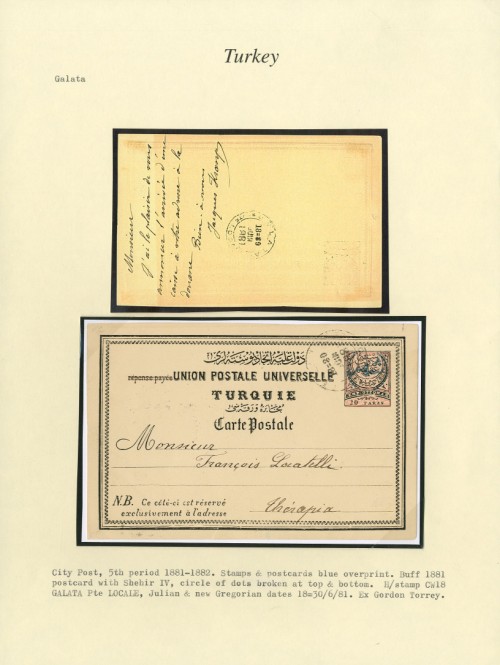 Turkey
Galata
Monsieur
J'ai le plaisir de vous
annoncer l'arrivée d'une
caisse à votre adresse à la
douane Bien à vous
Jacques
18=30
JUIN
1881
réponse payée UNION POSTALE UNIVERSELLE
TURQUIE
Carte Postale
Monsieur
François Locatelli
Thérapia
N.B. Ce côté-ci est réservé
exclusivement à l'adresse
20 PARAS
City Post, 5th period 1881-1882. Stamps & postcards blue overprint. Buff 1881
postcard with Shehir IV, circle of dots broken at top & bottom. H/stamp CW18
GALATA Pte LOCALE, Julian & new Gregorian dates 18=30/6/81. Ex Gordon Torrey.